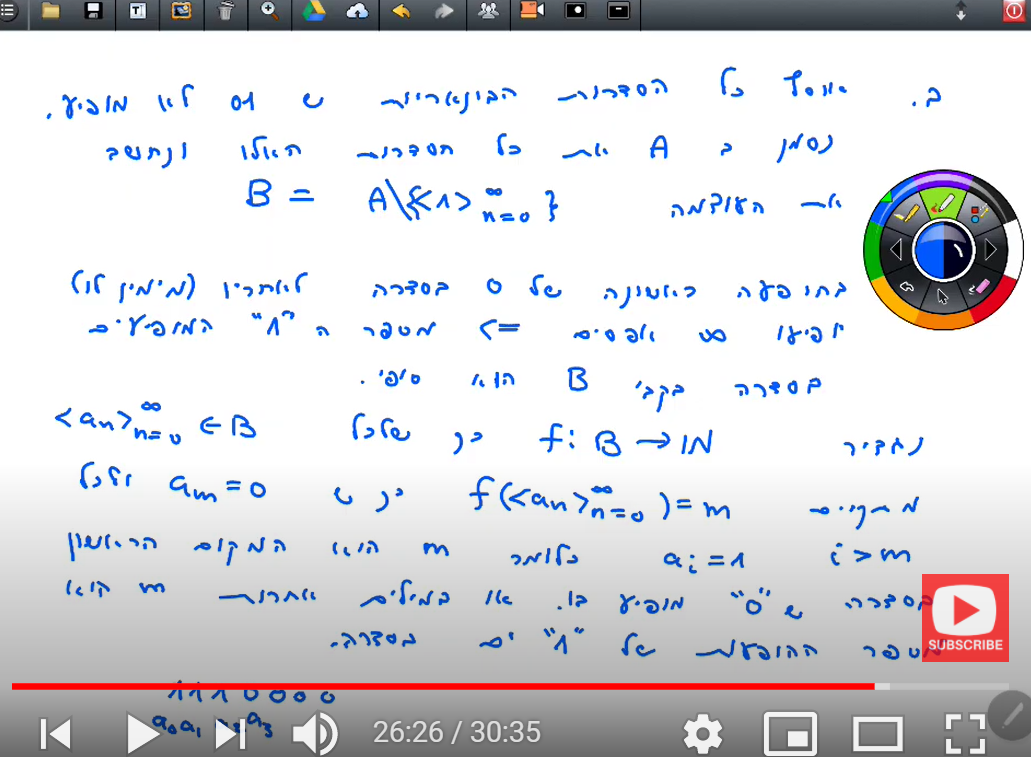 ב. אוסף כל הסדרות הבינאריות ש 01 לא מופיע.
נסמן ב A את כל הסדרות האלו ונחשב
את העוצמה B = A\{<1>_{n=0}^{∞}}
בהופעה ראשונה של 0 בסדרה לאחריו (מימין לו)
יופיעו ∞ אפסים <= מספר ה "1" המופיעים
בסדרה בקבי B הוא סופי.
נגדיר f: B → ℕ כך שלכל <a_n>_{n=0}^{∞} ∈ B
מתקיים f(<a_n>_{n=0}^{∞}) = m כך ש a_m = 0 ולכל
i > m a_i = 1 כלומר m הוא המקום הראשון
בסדרה ש "0" מופיע בו. או במילים אחרות m הוא
מספר ההופעות של "1" ים בסדרה.
1 1 1 0 0 0 0
a_0 a_1 a_3
SUBSCRIBE
26:26 / 30:35